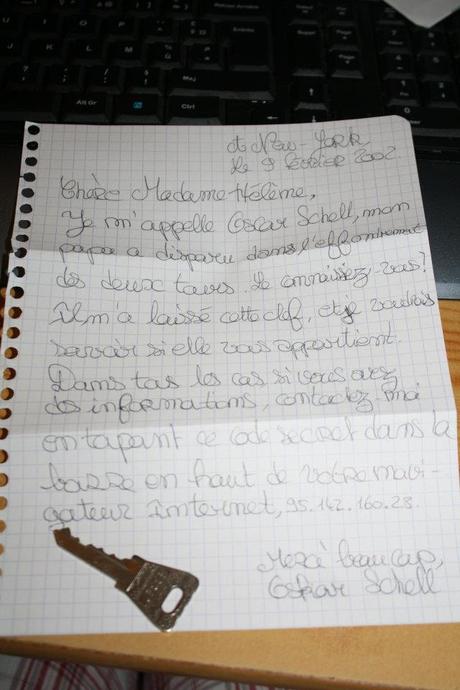 à New-York
le 9 février 2002.
Chère Madame Hélène,
Je m'appelle Oscar Schell, mon
papa a disparu dans l'effondrement
des deux tours. Le connaissiez-vous?
Il m'a laissé cette clef, et je voudrais
savoir si elle vous appartient.
Dans tous les cas si vous avez
des informations, contactez moi
en tapant ce code secret dans la
barre en haut de votre navi-
gateur Internet, 95.142.160.28.
Merci beaucoup,
Oskar Schell
Alt Gr
Ctrl
Maj